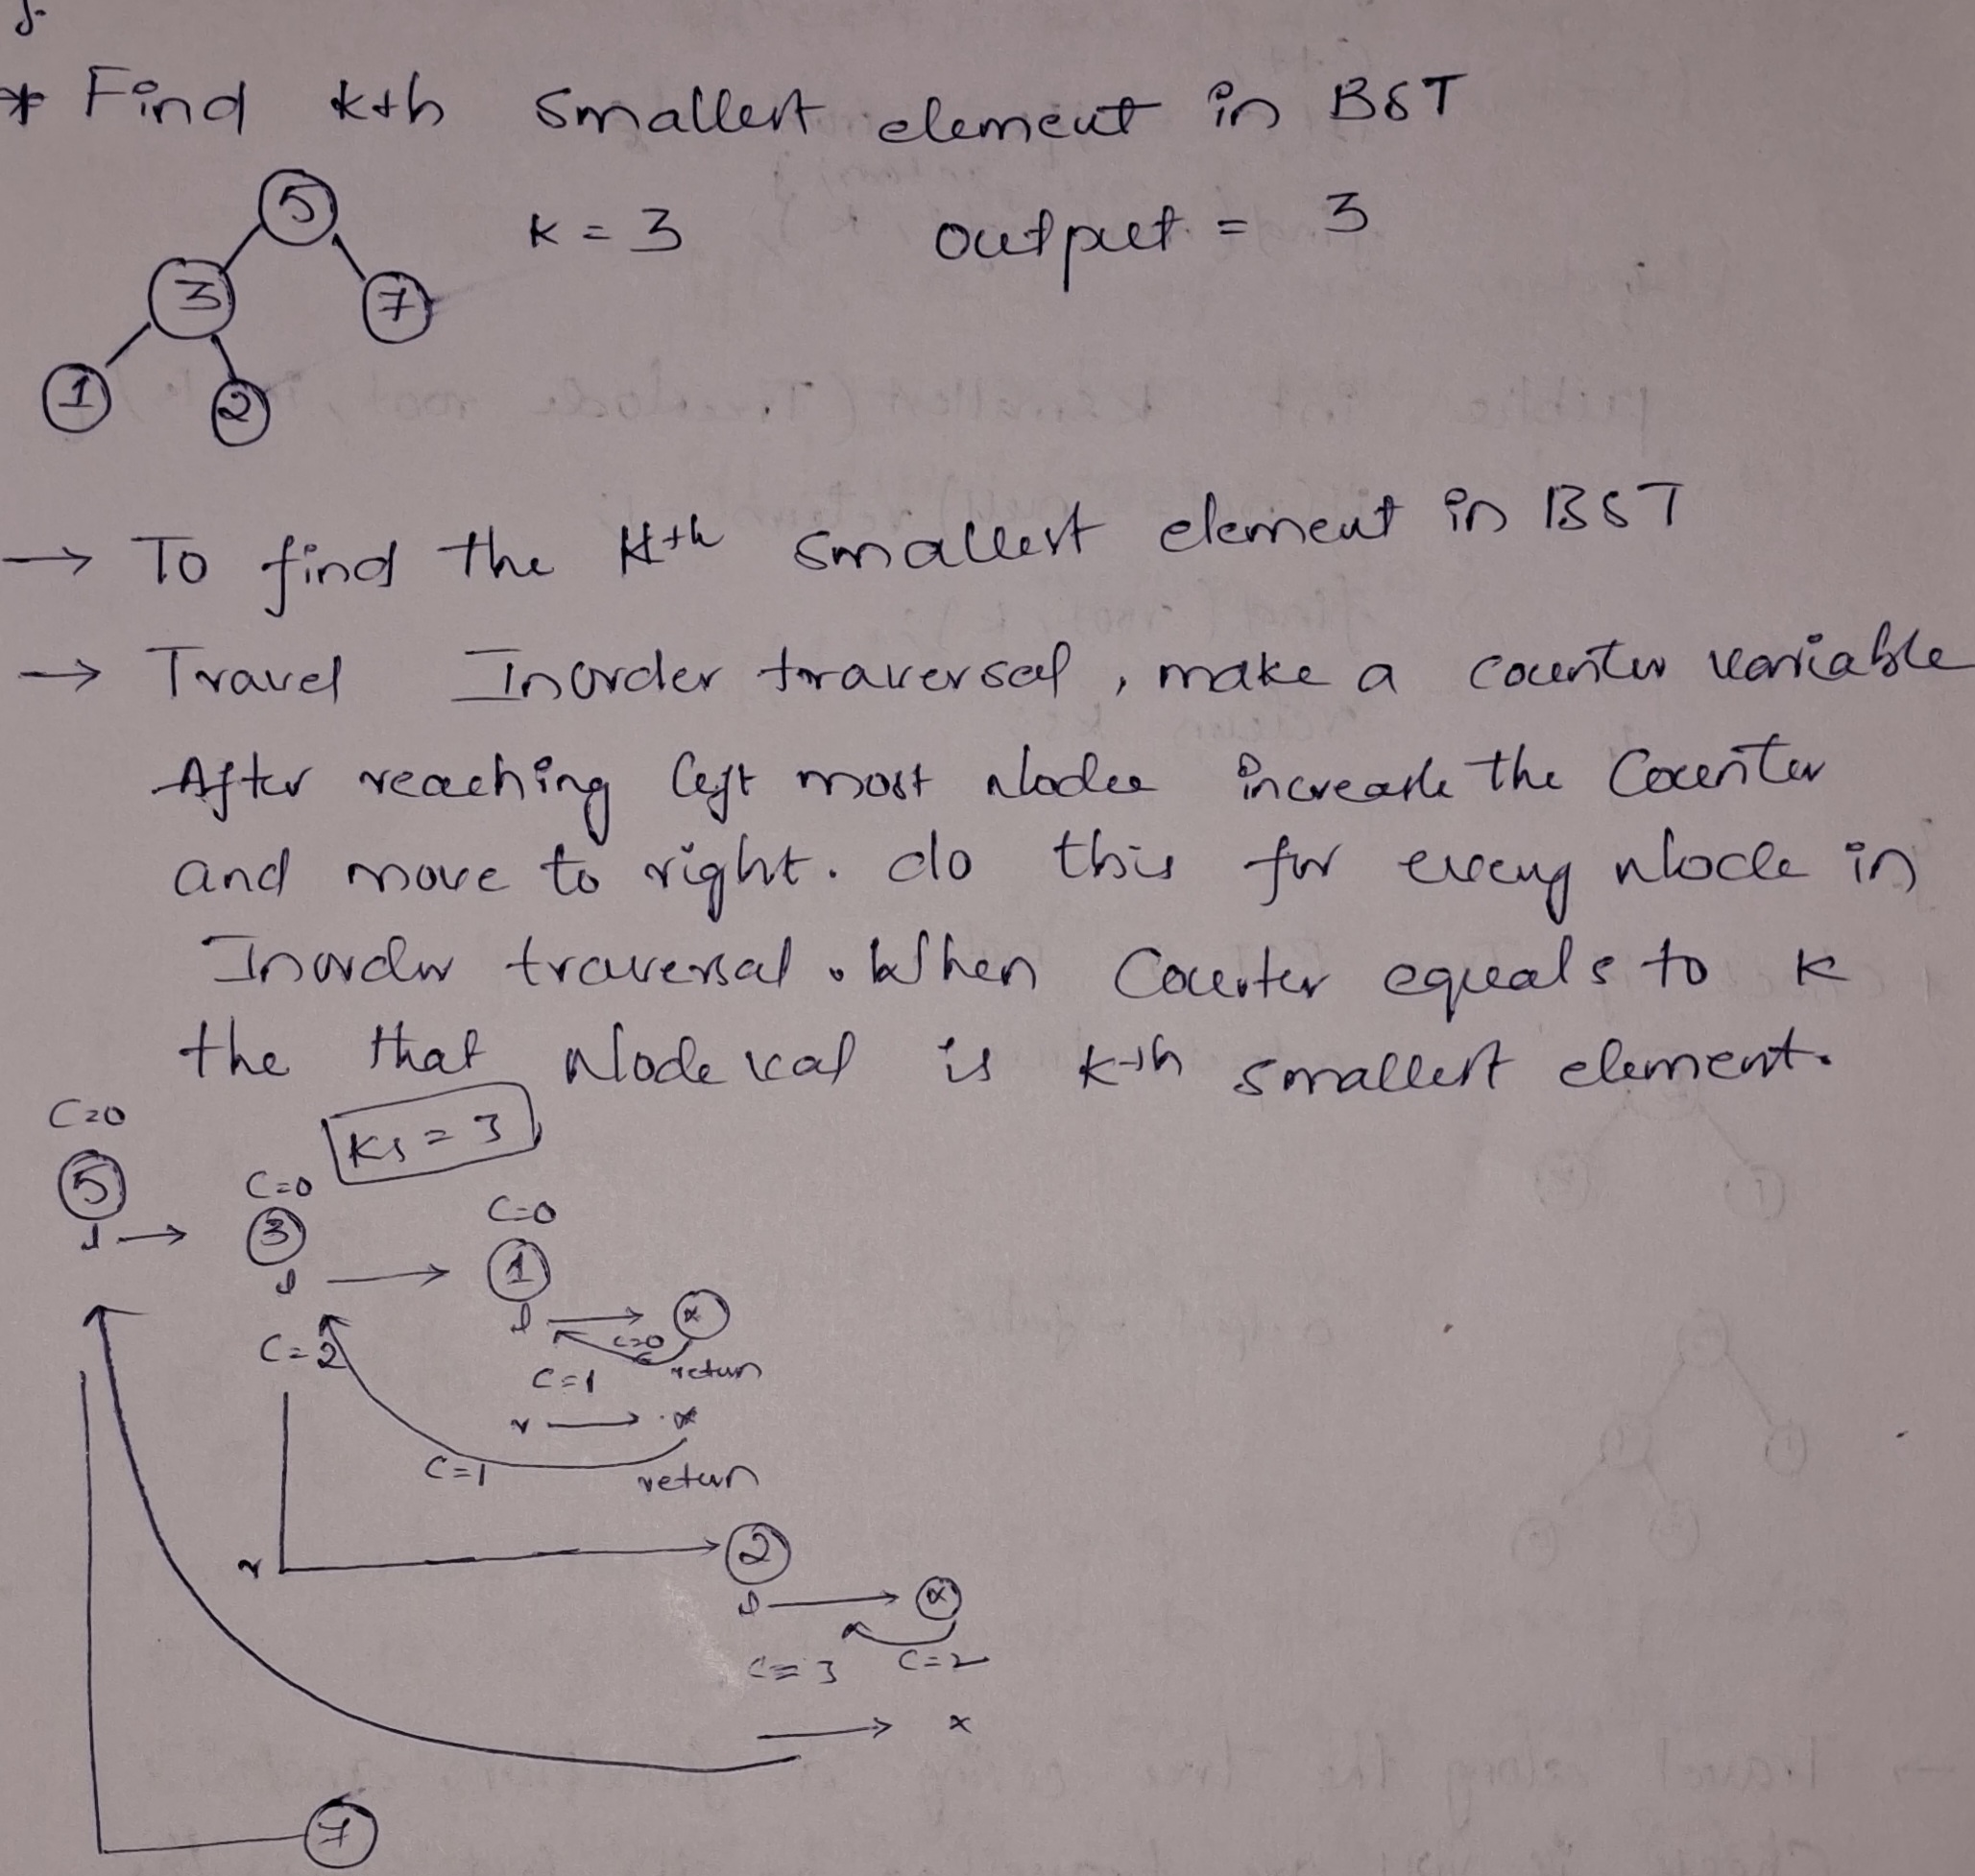 * Find kth smallest element in BST
5
k = 3 output = 3
3 7
1 2
→ To find the Kth smallest element in BST
→ Travel Inorder traversal, make a counter variable
After reaching left most Node increase the Counter
and move to right. do this for every Node in
Inorder traversal. When Counter equals to K
the that Node val is kth smallest element.
C=0
Ks = 3
5 C=0
C=0
l → 3
l → 1
l → x
C=0
C=2 C=1 return
r → x
C=1 return
r → 2
l → x
C=3 C=2
→ x
7